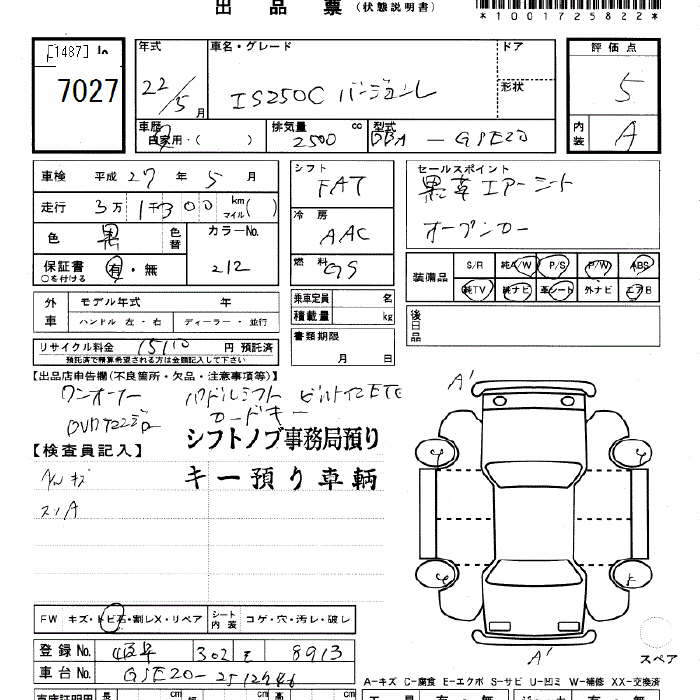 出品票(状態説明書)
*10017258822*
[1487]
7027
年式
22/5月
車名・グレード
IS250C バージョンL
ドア
形状
評価点
5
内装
A
車歴
自家用・( )
排気量 2500 cc
型式
DBA - GSE20
車検 平成 27 年 5 月
走行 3万1千300 km マイル( )
色 黒 色替
カラーNo.
212
保証書 有・無
○を付ける
シフト
FAT
冷房
AAC
燃料
GS
セールスポイント
黒革エアーシート
オープンカー
装備品
S/R 純A/W P/S P/W ABS
純TV 純ナビ 革シート 外ナビ エアB
外車
モデル年式 年
ハンドル 左・右 ディーラー・並行
乗車定員 名
積載量 kg
後日品
リサイクル料金 15110 円 預託済
預託済で精算希望される方は金額記入して下さい
書類期限
月 日
【出品店申告欄(不良箇所・欠品・注意事項等)】
ワンオーナー パドルシフト ビルトインETC
カードキー
シフトノブ事務局預り
キー預り車輌
【検査員記入】
A'
A'
スペア
FW キズ・トビ石・割レX・リペア シート内装 コゲ・穴・汚レ・破レ
登録No. 302 8913
車台No. GSE20-
A-キズ C-腐食 E-エクボ S-サビ U-凹ミ W-補修 XX-交換済
車庫証明用
cm
cm
cm
有・無
有・無